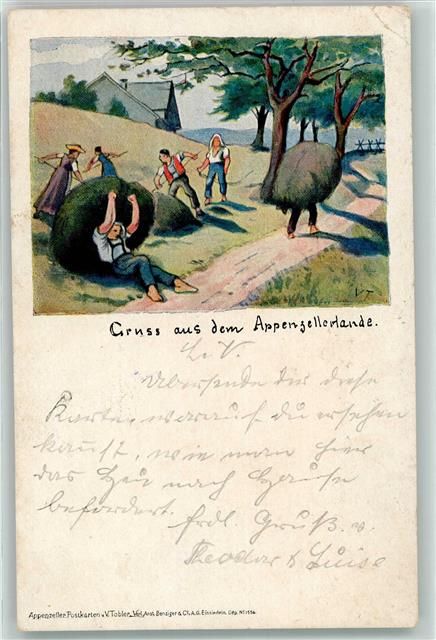 VT
Gruss aus dem Appenzellerlande.
L. V.
Übersende dir diese
Karte, worauf du ersehen
kannst, wie man hier
das Heu nach Hause
befördert.
frdl. Gruß. v.
Theodor & Luise
Appenzeller Postkarten v. V. Tobler. Verl. Anst. Benziger & Co. A.G. Einsiedeln. Dép. No 1554.